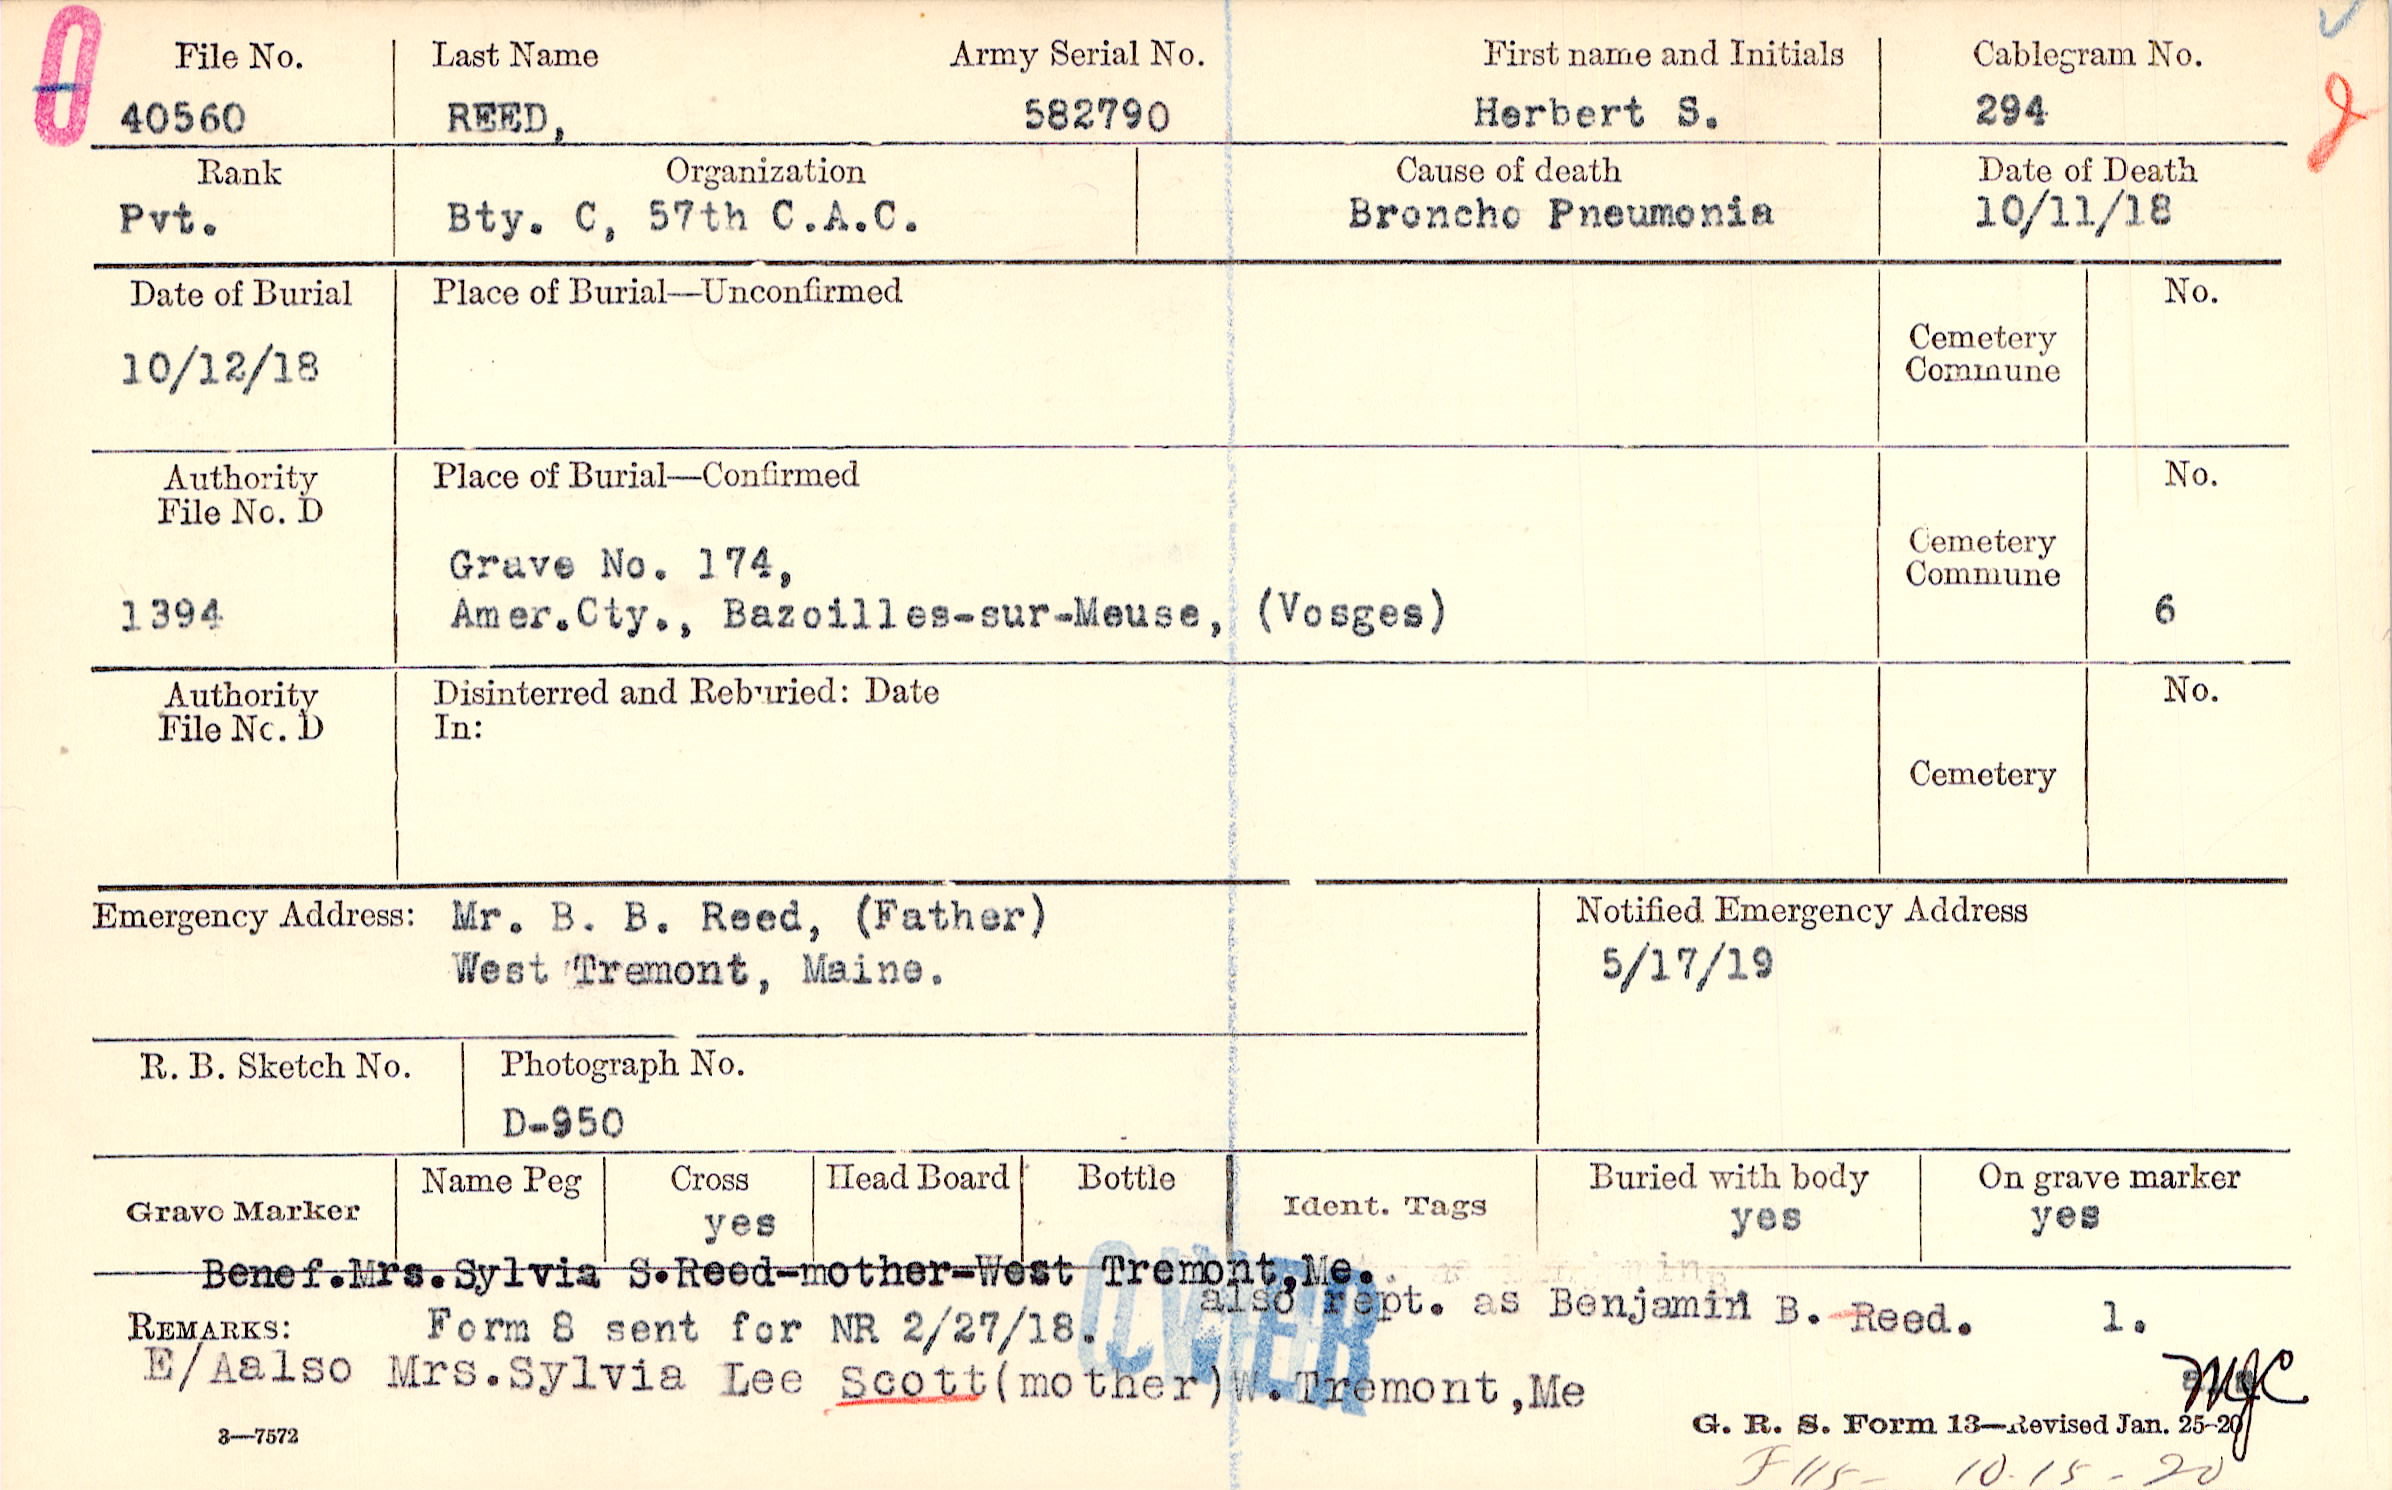 File No. Last Name Army Serial No. First name and Initials Cablegram No.
40560 REED, 582790 Herbert S. 294
Rank Organization Cause of death Date of Death
Pvt. Bty. C, 57th C.A.C. Broncho Pneumonia 10/11/18
Date of Burial Place of Burial—Unconfirmed No.
10/12/18 Cemetery
Commune
Authority Place of Burial—Confirmed No.
File No. D
Grave No. 174, Cemetery
Commune
1394 Amer.Cty., Bazoilles-sur-Meuse, (Vosges) 6
Authority Disinterred and Reburied: Date No.
File No. D In:
Cemetery
Emergency Address: Mr. B. B. Reed, (Father) Notified Emergency Address
West Tremont, Maine. 5/17/19
R. B. Sketch No. Photograph No.
D-950
Grave Marker Name Peg Cross Head Board Bottle Ident. Tags Buried with body On grave marker
yes yes yes
Benef.Mrs.Sylvia S.Reed-mother-West Tremont,Me.
also rept. as Benjamin B. Reed. 1.
REMARKS: Form 8 sent for NR 2/27/18.
OVER
E/Aalso Mrs.Sylvia Lee Scott(mother)W.Tremont,Me
MJC
3—7572 G. R. S. Form 13—Revised Jan. 25-20
10-15-20